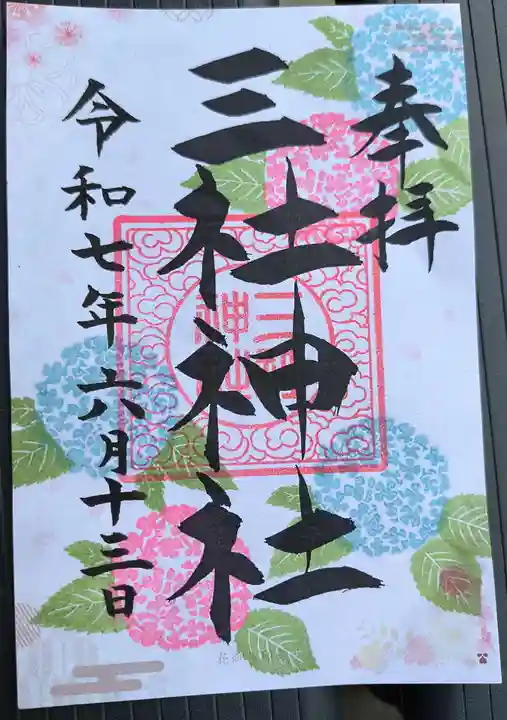 奉拝
三社神社
令和七年六月十三日